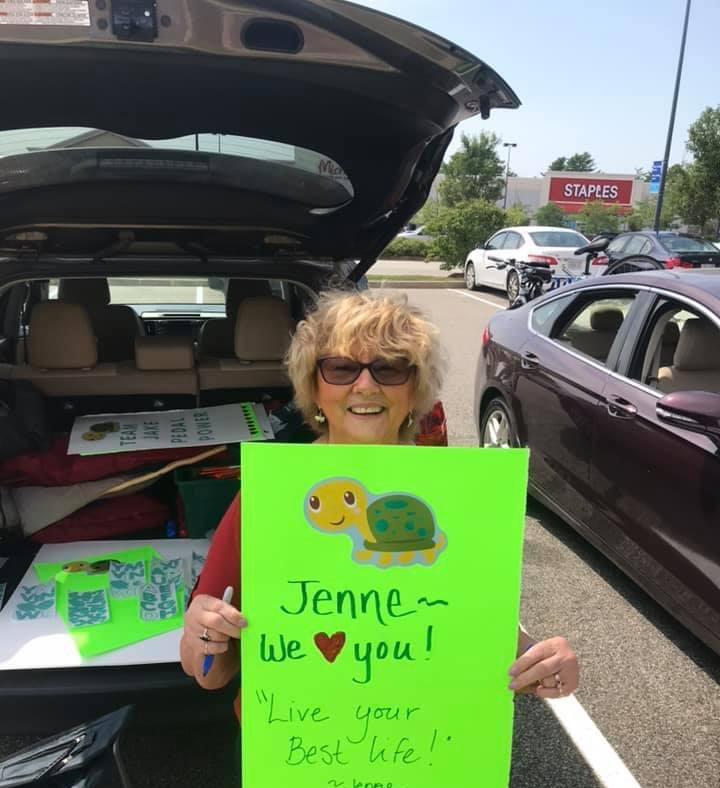 STAPLES
TEAM
JAKE
PEDAL
POWER
Jenne~
We ♥ you!
"Live your
Best life!"
~ Jenne